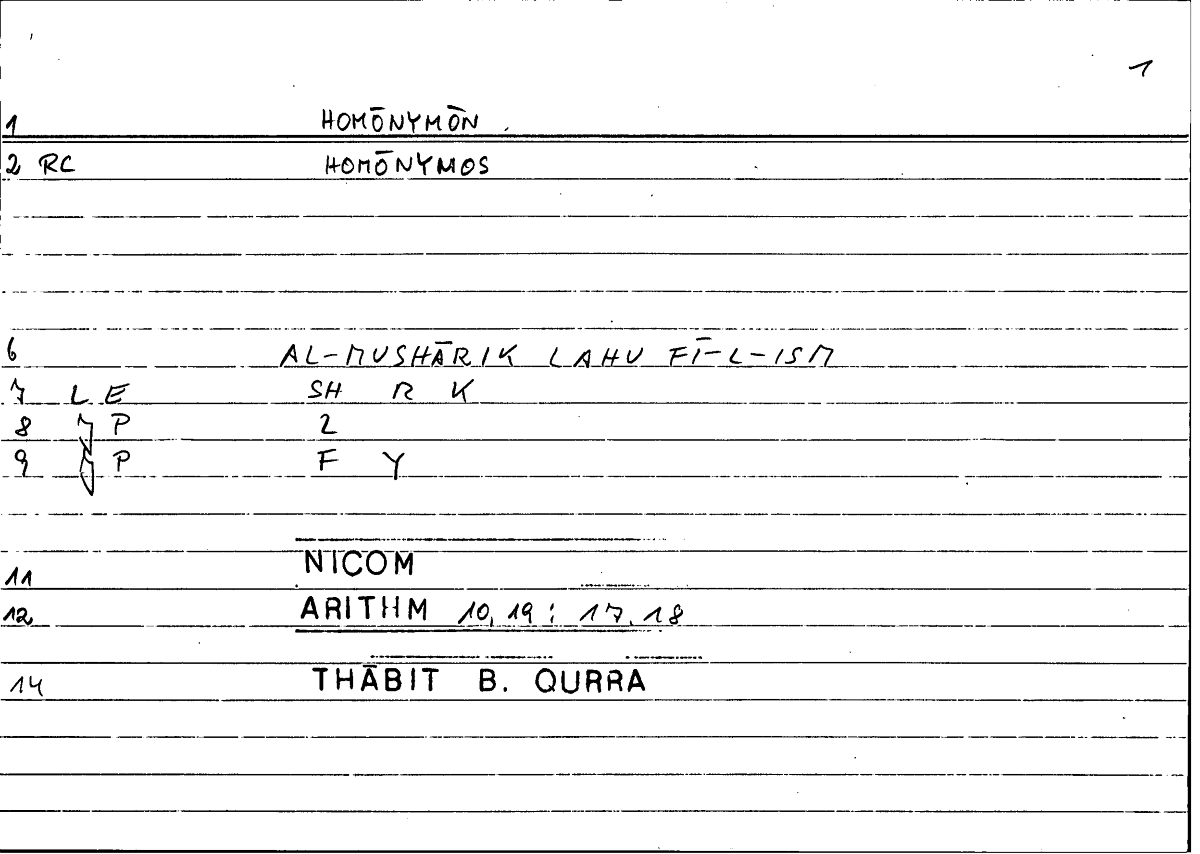 1
1 HOMŌNYMŌN
2 RC HOMŌNYMOS
6 AL-MUSHĀRIK LAHU FĪ-L-ISM
7 L E SH R K
8 7 P 2
9 P F Y
11 NICOM
12 ARITHM 10,19 : 17.18
14 THĀBIT B. QURRA